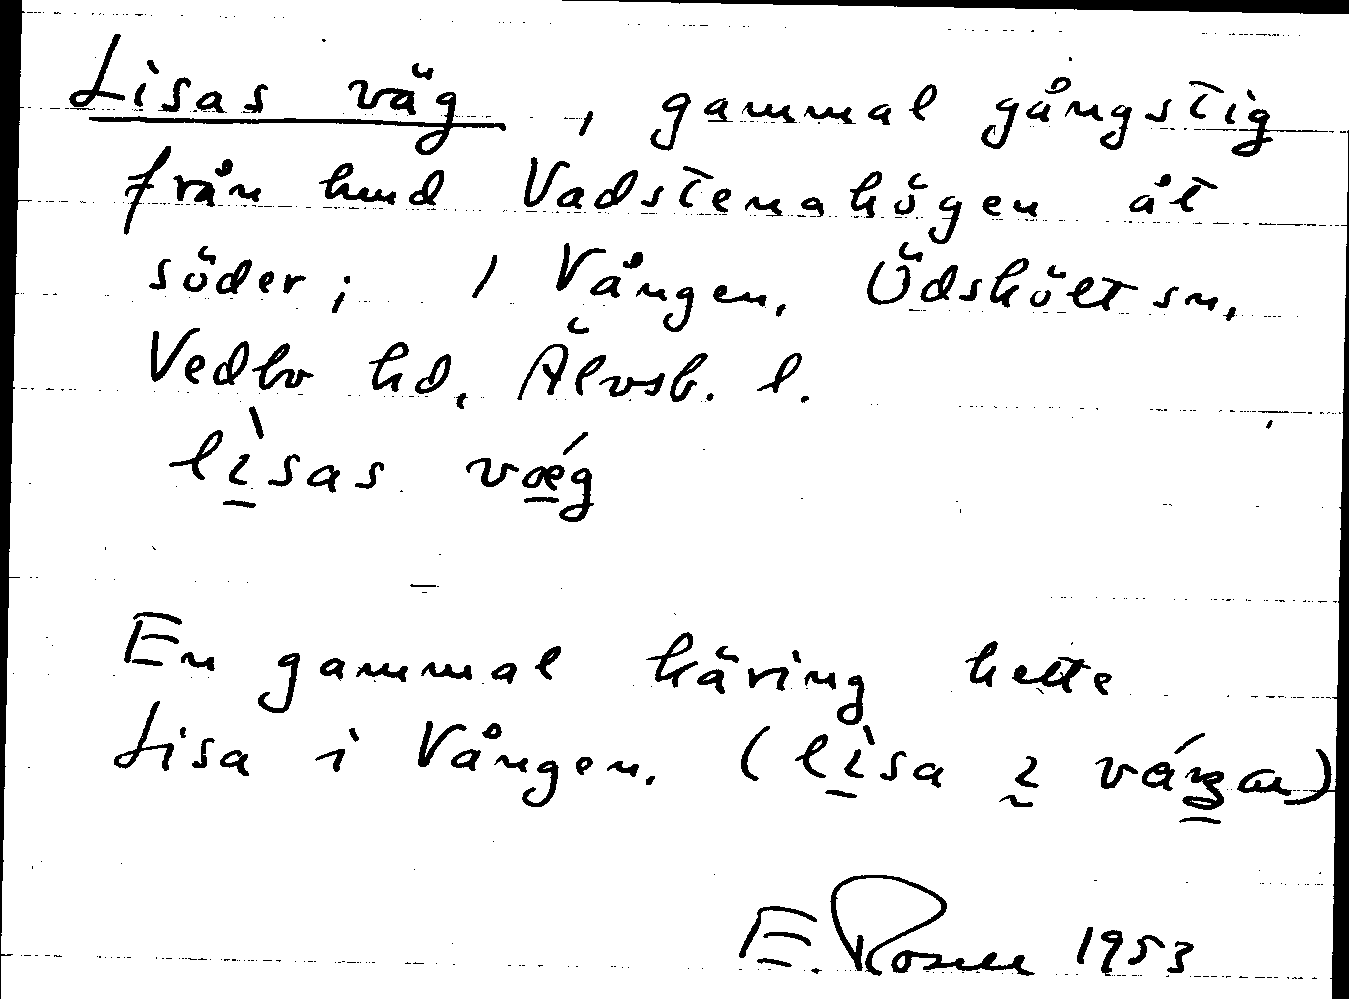 Lisas väg, gammal gångstig
från hmd Vadstenahögen åt
söder; / Vången, Ödskölt sn,
Vedbo hd, Älvsb. l.
lìsas vǽg
En gammal käring hette
Lisa i Vången. (lìsa ı
E. Rosell 1953